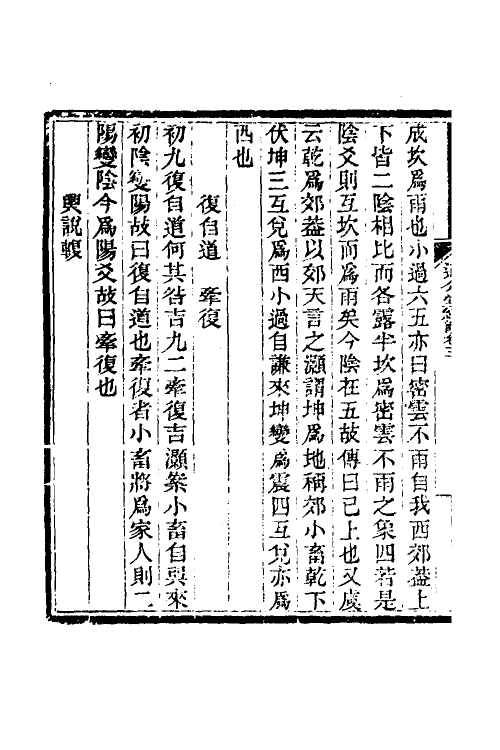 成坎爲雨也小過六五亦曰密雲不雨自我西郊葢上
下皆二陰相比而各露半坎爲密雲不雨之象四若是
陰爻則互坎而爲雨矣今陰在五故傳曰已上也又虞
云乾爲郊葢以郊天言之灝謂坤爲地稱郊小畜乾下
伏坤三互兌爲西小過自謙來坤變爲震四互兌亦爲
西也
復自道　牽復
初九復自道何其咎吉九二牽復吉灝案小畜自巽來
初陰變陽故曰復自道也牽復者小畜將爲家人則二
陽變陰今爲陽爻故曰牽復也
輿説輹